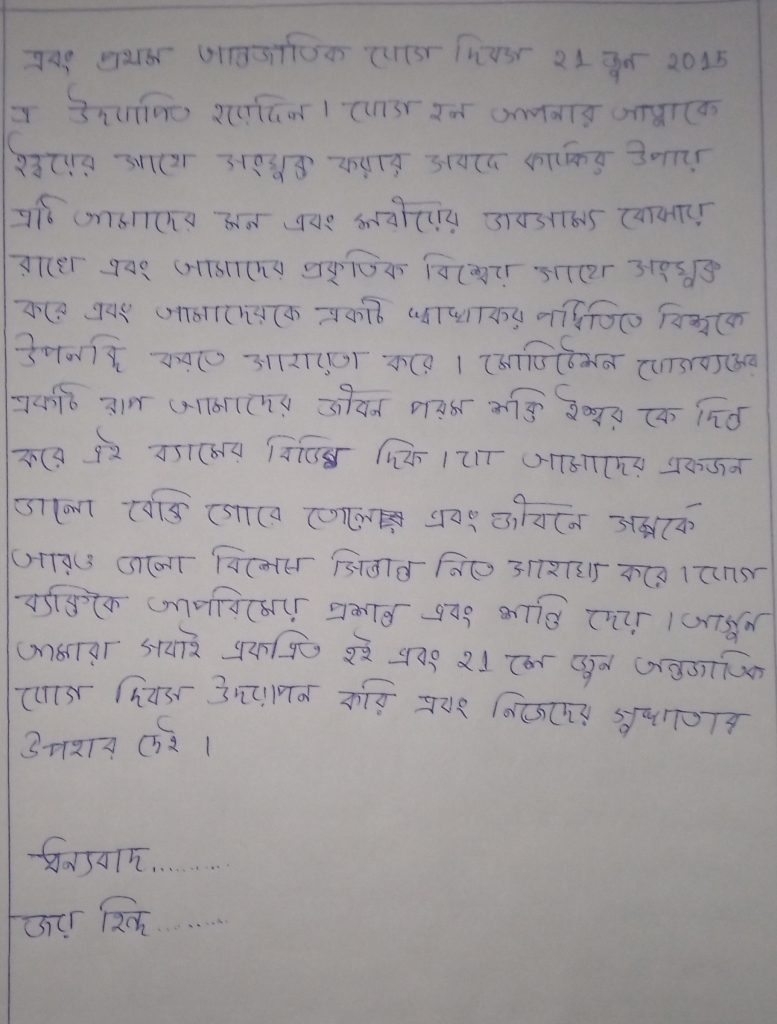 এবং প্রথম আন্তজাতিক যোগ দিবস 21 জুন 2015
এ উদযাপিত হয়েছিল। যোগ হল আপনার আত্মাকে
ইশ্বরের সাথে সংযুক্ত করার সবদে কার্যকির উপায়
এটি আমাদের মন এবং শরীরের ভাবসাম্য বোঝায়
রাখে এবং আমাদের প্রকৃতিক বিশ্বের সাথে সংযুক্ত
করে এবং আমাদেরকে একটি স্বাস্থ্যকর পদ্ধিতিতে বিশ্বকে
উপলব্ধি করতে সাহায়তা করে। মেডিটেশন যোগব্যমের
একটি রূপ আমাদের জীবন পরম শক্তি ইশ্বর কে দিত
করে এই ব্যামের বিভিন্ন দিক। যা আমাদের একজন
ভালো বেক্তি গোরে তোলে এবং জীবনে সম্পর্কে
আরও ভালো বিশেস সিতান্ত নিতে সাহায্য করে। যোগ
ব্যক্তিকে আপরিমেয় প্রশান্ত এবং শান্তি দেয়। আসুন
আমারা সবাই একত্রিত হই এবং 21 শে জুন অন্তজাতিক
যোগ দিবস উদযাপন করি এবং নিজেদের সুস্থ্যতার
উপহার দেই।
ধন্যবাদ..........
জয় হিন্দ.........